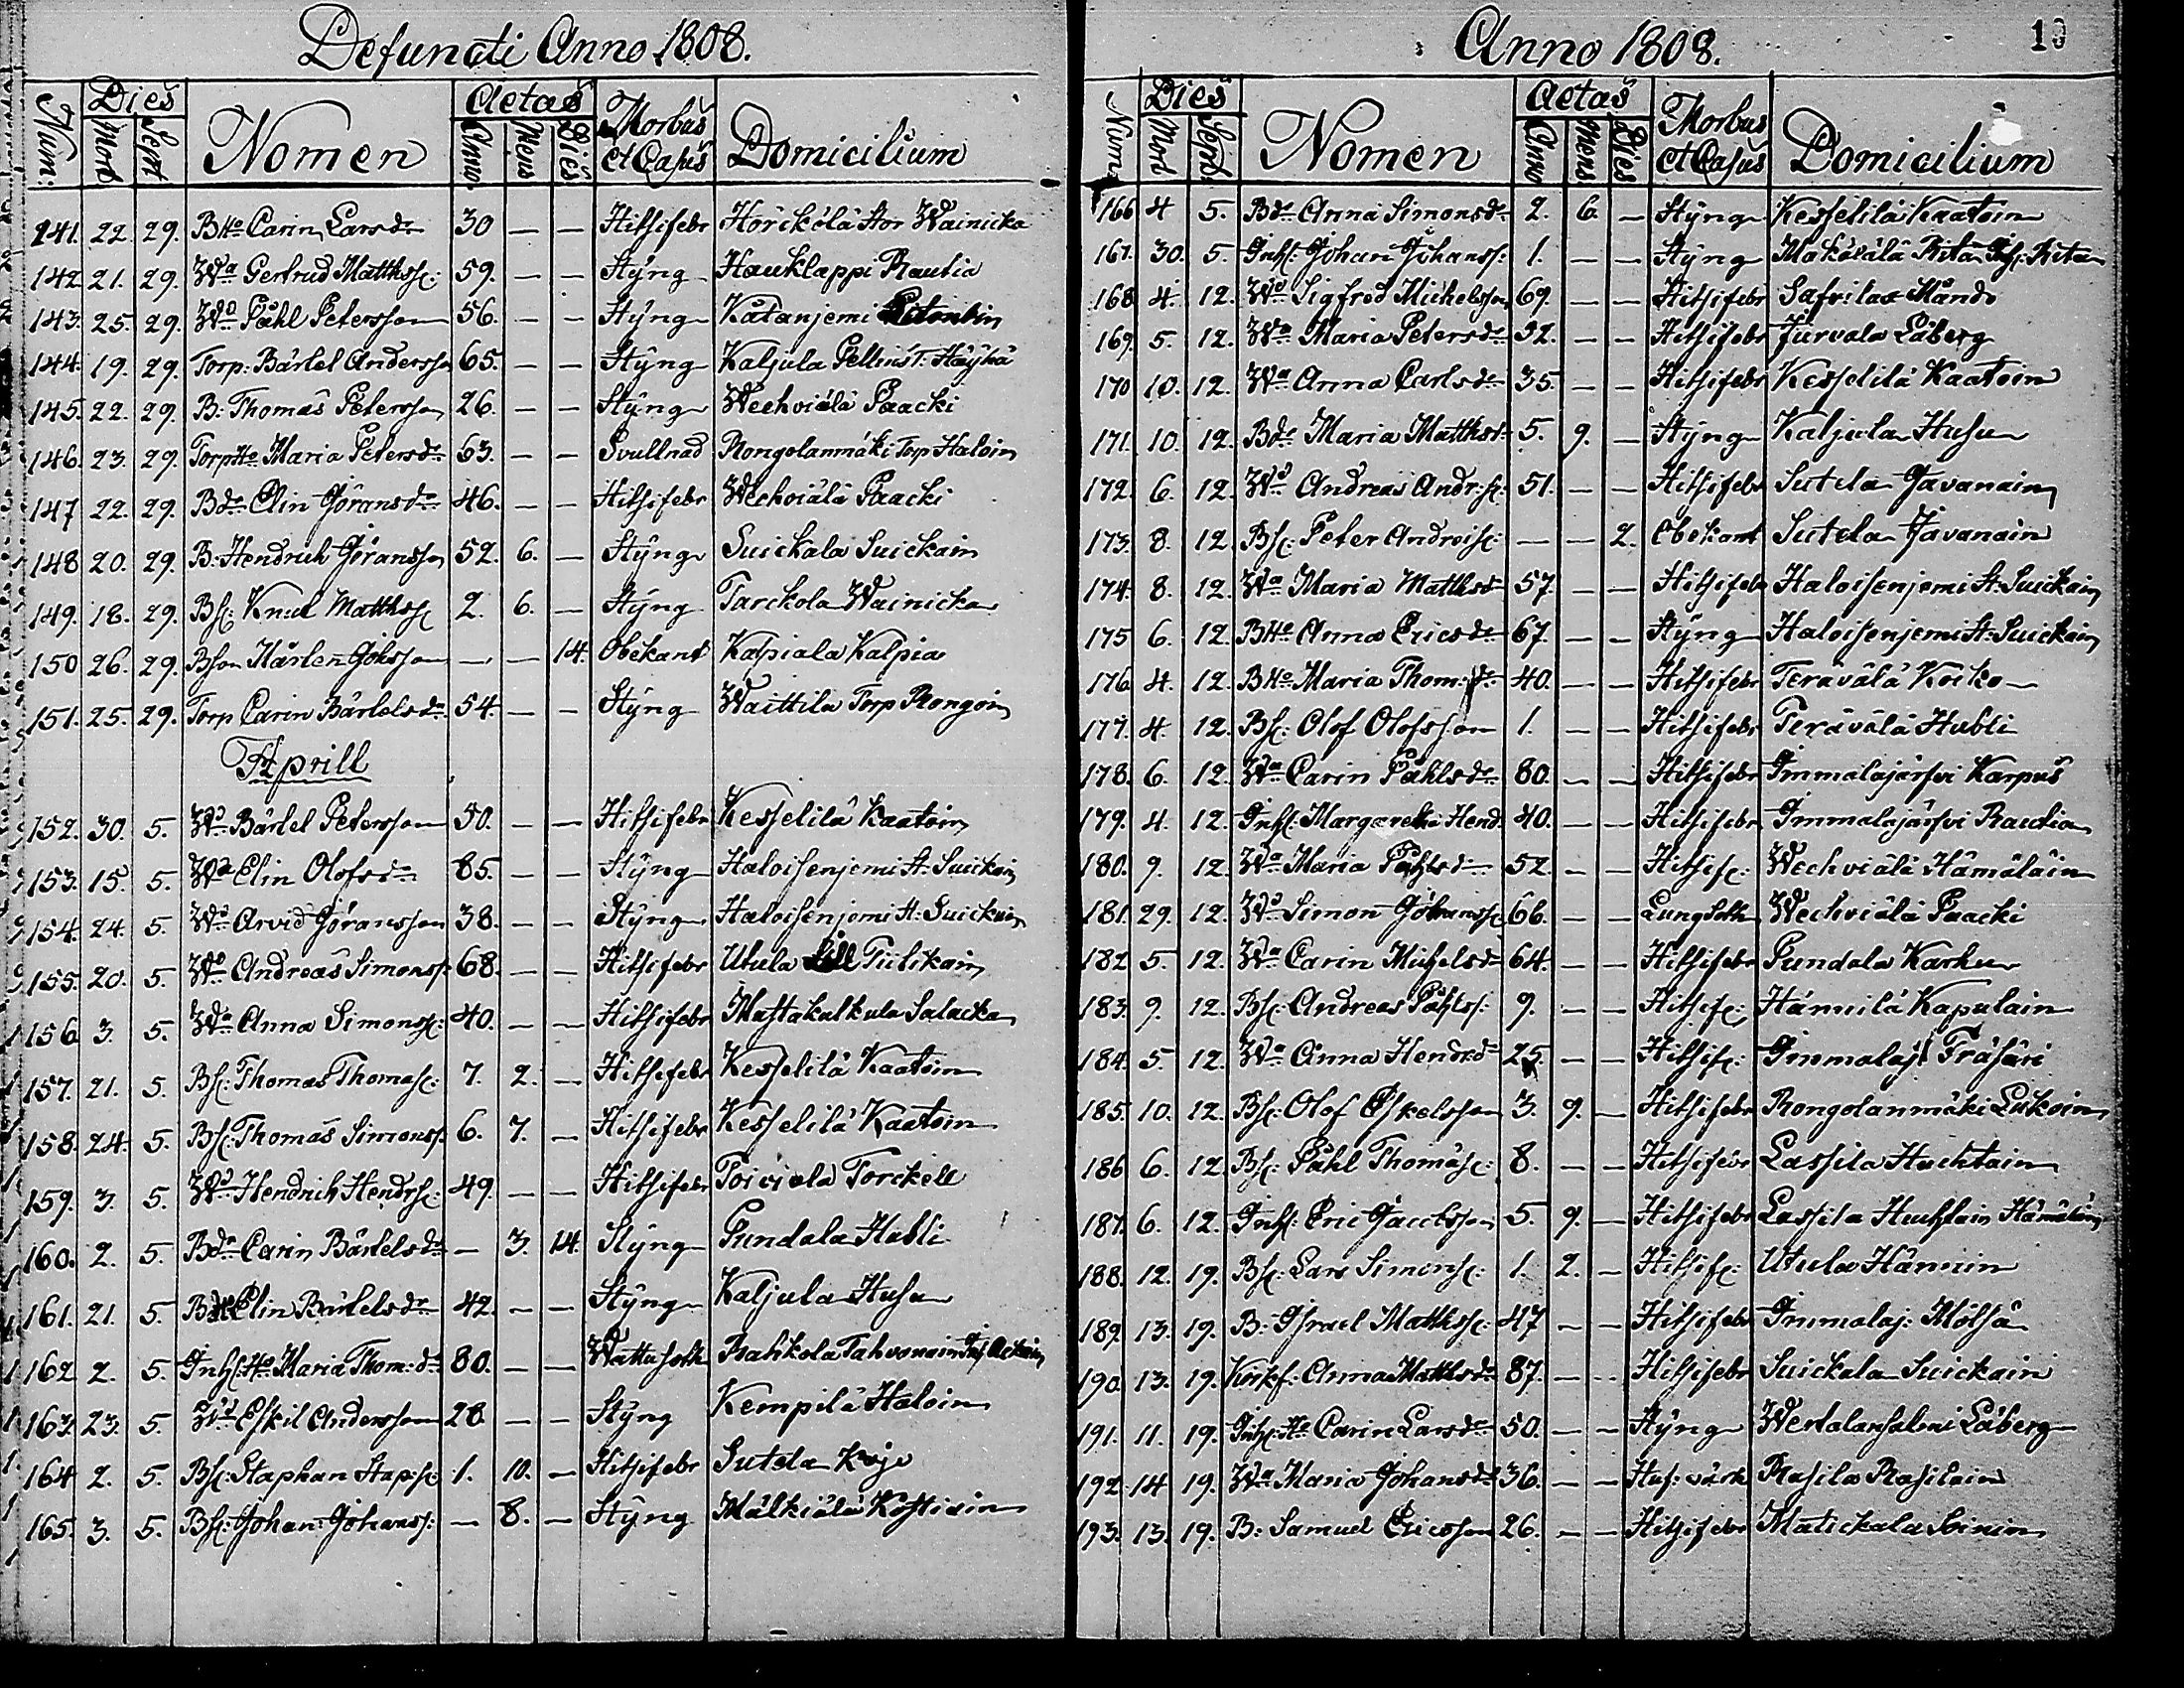 Defuncti Anno 1808.
Num: Dies Mort Sept Nomen Aetas Anno Mens Dies Morbus et Casus Domicilium
141. 22. 29. BHo Carin Larsdr 30 — — Hitsifebr Hörickölä Stor Wainicka
142 21. 29. Wa Gertrud Matthsf: 59. — — Styng Hauklappi Rautia
143. 25. 29. Wd Påhl Petersson 56. — — Styng Kätänjemi
144. 19. 29. Torp: Bärtel Andersson 65. — — Styng Kaljula Pellins T. Häyhä
145. 22. 29. B: Thomas Petersson 26. — — Styng Wechviälä Paacki
146. 23. 29. TorpHo Maria Petersdr 63. — — Svullnad Rongolanmäki Torp Haloin
147 22. 29. Bdr Elin Göransdr 46. — — Hitsifebr Wechviälä Paacki
148 20. 29. B: Hendrich Göransson 52. 6. — Styng Suickala Suickain
149. 18. 29. Bs: Knut Matthss 2. 6. — Styng Tarckola Wainicka
150 26. 29. Bson Mårten Göksson — — 14. Obekant Kalpiala Kalpia
151. 25. 29. Torp Carin Bärtelsdr 54. — — Styng Waittila Torp Rongoin
Aprill
152. 30. 5. Wd Bärtel Petersson 50. — — Hitsifebr Kesselilä Kaatoin
153. 15. 5. Wa Elin Olofsdr 85. — — Styng Haloisenjemi St. Suickain
154. 24. 5. Wd Arvid Göransson 38. — — Styng Haloisenjemi St. Suickain
155. 20. 5. Wd Andreas Simonss: 68. — — Hitsifebr Utula Tiilikain
156 3. 5. Wa Anna Simonss: 40. — — Hitsifebr Mastakalkula Salacka
157. 21. 5. Bs: Thomas Thomass: 7. 2. — Hitsifebr Kesselilä Kaatoin
158. 24. 5. Bs: Thomas Simonss: 6. 7. — Hitsifebr Kesselilä Kaatoin
159. 3. 5. Wd Hendrich Hendrs: 49. — — Hitsifebr Toiviala Torckell
160. 2. 5. Bdr Carin Bärtelsdr — 3. 14. Styng Pundala Hubli
161. 21. 5. Elin Bärtelsdr 42. — — Styng Kaljula Husu
162 2. 5. Inhs: Ho Maria Thom: dr 80. — — Wattusoth Rahikola Tahvonain
163. 23. 5. Wd Eskil Andersson 28 — — Styng Kempilä Haloin
164 2. 5. Bs: Staphan Stap:s: 1. 10. — Hitsifebr Sutela Koje
165. 3. 5. Bs: Johan Johanss: — 8. — Styng Mälkiälä Kostiain
Anno 1808.
Num. Dies Mort Sept. Nomen Aetas Anno Mens Dies Morbus et Casus Domicilium
166 4 5. Bdr Anna Simonsdr 2. 6. — Styng Kesselilä Kaatoin
167. 30. 5. Inhs: Johan Johanss: 1. — — Styng
168 4. 12. Wd Sigfred Michelsson 69. — — Hitsifebr
169. 5. 12. Wa Maria Petersdr 32. — — Hitsifebr Jurvala Låberg
170 10. 12. Wa Anna Carlsdr 35. — — Hitsifebr Kesselilä Kaatoin
171. 10. 12. Bdr Maria Matthsdr 5. 9. — Styng Kaljula Husu
172. 6. 12. Wd Andreas Andr:s: 51. — — Hitsifebr Sutela Javanain
173. 8. 12. Bs: Peter Andreis: — — 2. Obekant Sutela Javanain
174. 8. 12. Wa Maria Matthsdr 57. — — Hitsifebr Haloisenjemi St. Suickain
175 6. 12. BHo Anna Ericsdr 67. — — Styng Haloisenjemi St. Suickain
176 4. 12. BHo Maria Thom: dr 40. — — Hitsifebr Terävälä Koiko
177. 4. 12. Bs: Olof Olofsson 1. — — Hitsifebr Terävälä Hubli
178. 6. 12. Wa Carin Påhlsdr 80. — — Hitsifebr Immalajärfvi Karpus
179. 4. 12. Inhs: Margaretha Hend. 40. — — Hitsifebr Immalajärfvi Rautia
180. 9. 12. Wa Maria Påhlsdr 52. — — Hitsif: Wechviälä Hämäläin
181. 29. 12. Wd Simon Göranss: 66. — — Lungsoth Wechviälä Paacki
182 5. 12. Wa Carin Michelsdr 64. — — Hitsifebr Pundala Karhu
183. 9. 12. Bs: Andreas Påhls: 9. — — Hitsif: Hämiilä Kapulain
184. 5. 12. Wa Anna Hendrdr 25. — — Hitsif: Immalaj: Träsäri
185. 10. 12. Bs: Olof Eskelsson 3. 9. — Hitsifebr Rongolanmäki Liikoin
186 6. 12. Bs: Påhl Thomass: 8. — — Hitsifebr Lassila Huchtain
187. 6. 12. Inhs: Eric Jacobsson 5. 9. — Hitsifebr Lassila Huchtain Hämäläin
188. 12. 19. Bs: Lars Simons: 1. 2. — Hitsif: Utula Hännin
189. 13. 19. B: Israel Matthss: 47 — — Hitsifebr Immalaj: Mölsä
190. 13. 19. Anna Matthsdr 87. — — Hitsifebr Suickala Suickain
191. 11. 19. Inhs: Ho Carin Larsdr 50. — — Styng Wentalansalmi Låberg
192 14 19. Wa Maria Johansdr 36. — — Huf: värk Rasila Rasilain
193. 13. 19. B: Samuel Ericsson 26. — — Hitsifebr Matickala Soinin